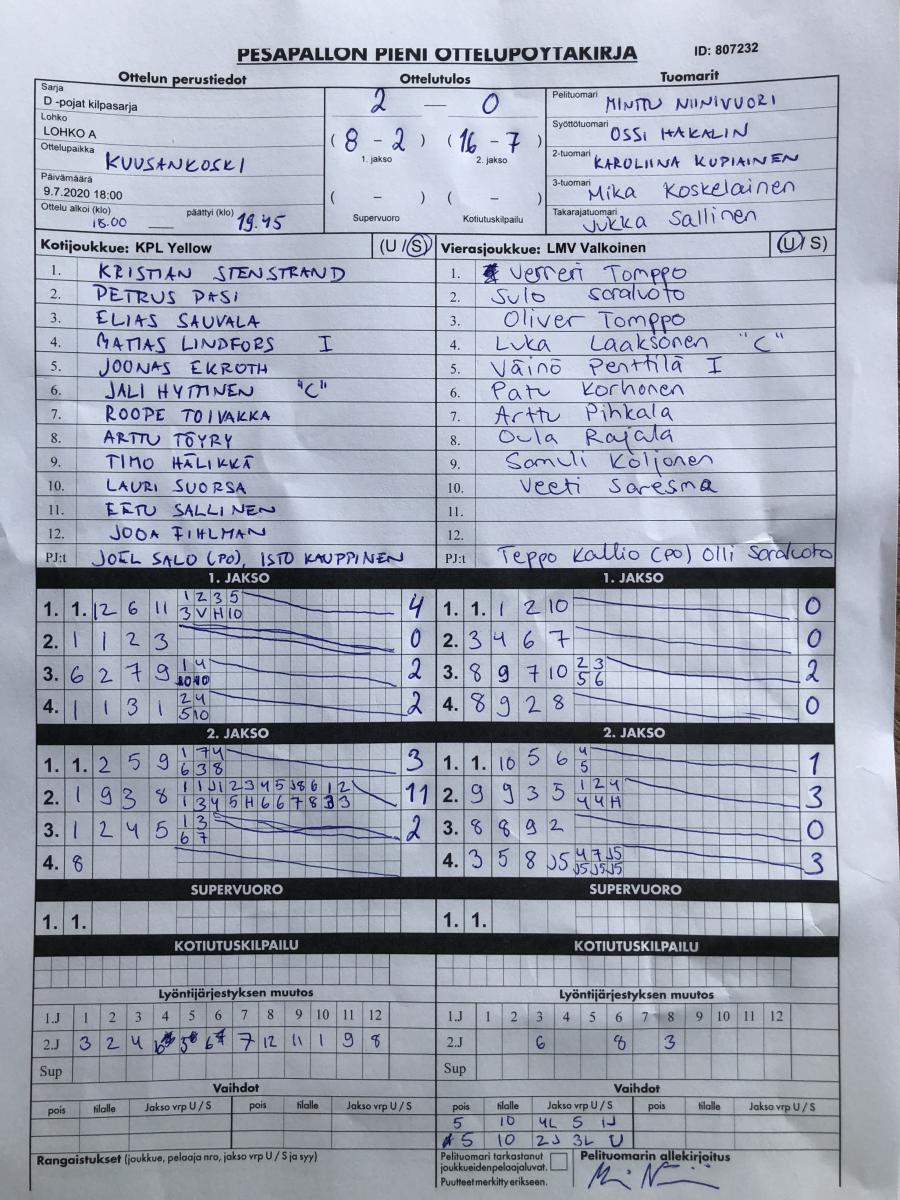 PESÄPALLON PIENI OTTELUPÖYTÄKIRJA ID: 807232
Ottelun perustiedot Ottelutulos Tuomarit
Sarja
D -pojat kilpasarja
Lohko
LOHKO A
Ottelupaikka KUUSANKOSKI
Päivämäärä
9.7.2020 18:00
Ottelu alkoi (klo) 18.00 päättyi (klo) 19.45
2 — 0
( 8 - 2 ) ( 16 - 7 )
1. jakso 2. jakso
( - ) ( - )
Supervuoro Kotiutuskilpailu
Pelituomari MINTTU NIINIVUORI
Syöttötuomari OSSI HAKALIN
2-tuomari KAROLIINA KUPIAINEN
3-tuomari Mika Koskelainen
Takarajatuomari Jukka Sallinen
Kotijoukkue: KPL Yellow (U / S)
1. KRISTIAN STENSTRAND
2. PETRUS PASI
3. ELIAS SAUVALA
4. MATIAS LINDFORS I
5. JOONAS EKROTH
6. JALI HYTTINEN "C"
7. ROOPE TOIVAKKA
8. ARTTU TÖYRY
9. TIMO HÄLIKKÄ
10. LAURI SUORSA
11. EETU SALLINEN
12. JOOA FIHLMAN
PJ:t JOEL SALO (PO), ISTO KAUPPINEN
Vierasjoukkue: LMV Valkoinen (U / S)
1. Verneri Tomppo
2. Sulo Soraluoto
3. Oliver Tomppo
4. Luka Laaksonen "C"
5. Väinö Penttilä I
6. Patu Korhonen
7. Arttu Pihkala
8. Oula Rajala
9. Samuli Koljonen
10. Veeti Saresma
11.
12.
PJ:t Teppo Kallio (PO) Olli Soraluoto
1. JAKSO
1. 1. 12 6 11 1 2 3 5 4
3 V H 10
2. 1 1 2 3 0
3. 6 2 7 9 1 4 2
10 10
4. 1 1 3 1 2 4 2
5 10
2. JAKSO
1. 1. 2 5 9 1 7 4 3
6 3 8
2. 1 9 3 8 1 1 J1 2 3 4 5 J8 6 1 2 11
1 3 4 5 H 6 6 7 8 3 3
3. 1 2 4 5 1 3 2
6 7
4. 8
SUPERVUORO
1. 1.
KOTIUTUSKILPAILU
1. JAKSO
1. 1. 1 2 10 0
2. 3 4 6 7 0
3. 8 9 7 10 2 3 2
5 6
4. 8 9 2 8 0
2. JAKSO
1. 1. 10 5 6 4 1
5
2. 9 9 3 5 1 2 4 3
4 4 H
3. 8 8 9 2 0
4. 3 5 8 J5 4 7 J5 3
J5 J5 J5
SUPERVUORO
1. 1.
KOTIUTUSKILPAILU
Lyöntijärjestyksen muutos
1.J 1 2 3 4 5 6 7 8 9 10 11 12
2.J 3 2 4 5 6 7 12 11 1 9 8
Sup
Vaihdot
pois tilalle Jakso vrp U / S pois tilalle Jakso vrp U / S
Lyöntijärjestyksen muutos
1.J 1 2 3 4 5 6 7 8 9 10 11 12
2.J 6 8 3
Sup
Vaihdot
pois tilalle Jakso vrp U / S pois tilalle Jakso vrp U / S
5 10 4L S 1J
5 10 2J 3L U
Rangaistukset (joukkue, pelaaja nro, jakso vrp U / S ja syy)
Pelituomari tarkastanut
joukkueiden pelaajaluvat.
Puutteet merkitty erikseen.
Pelituomarin allekirjoitus